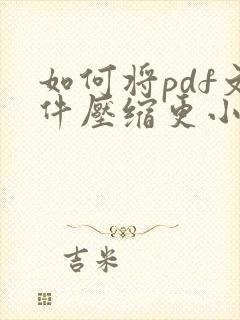 如何将pdf文
件壓缩更小
吉米